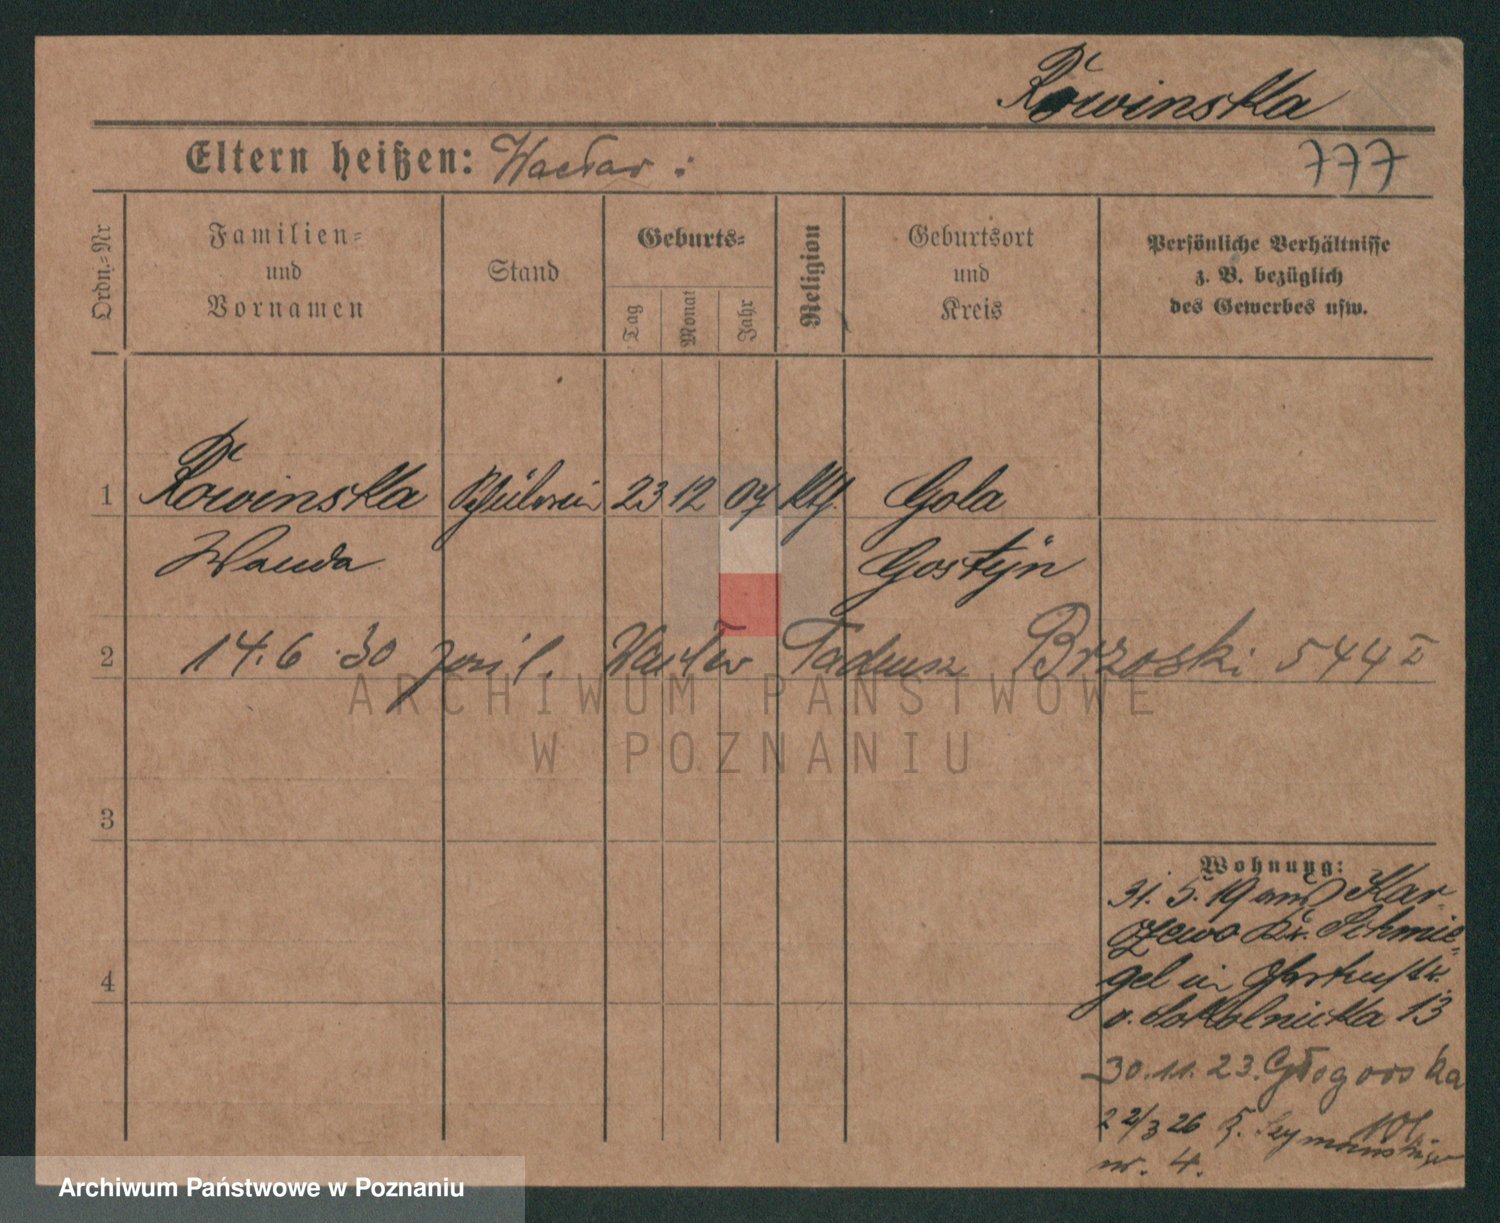 Rowinska
Eltern heißen: Wacław :
777
Ordn.-Nr
Familien-
und
Vornamen
Stand
Geburts-
Tag
Monat
Jahr
Religion
Geburtsort
und
Kreis
Persönliche Verhältnisse
z. B. bezüglich
des Gewerbes usw.
1 Rowinska Schülerin 23 12 07 kth. Gola
Wanda Gostyn
2 14.6.30 Wacław Tadeusz Brzoski 544 I
ARCHIWUM PAŃSTWOWE
W POZNANIU
3
Wohnung:
31. 5. 19 aus Kar-
czewo Kr. Schmie-
4
gel in
b. Sokolnicka 13
30.11.23. Głogowska
101
22/3 26
nr. 4.
Archiwum Państwowe w Poznaniu